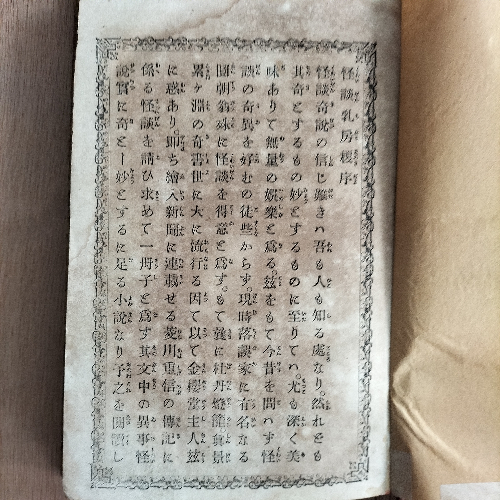 怪談乳房榎序
怪談奇説の信じ難きハ吾も人も知る處なり。然れども
其奇とするもの妙とするものに至りてハ。尤も深く美
味ありて無量の娯樂と為る。玆をもて今昔を問ハず怪
談の奇異を好むの徒些からず。現時落談家に有名なる
圓朝翁殊に怪談を得意と為す。もて曩に牡丹燈籠眞景
累ヶ淵の奇書世に大に流行る因て以て金櫻堂主人玆
に感あり。即ち繪入新聞に連載せる菱川重信の傳記に
係る怪談を請ひ求めて一冊子と為す其文中の異事怪
説實に奇とし妙とするに足る小説なり予之を閲讀し